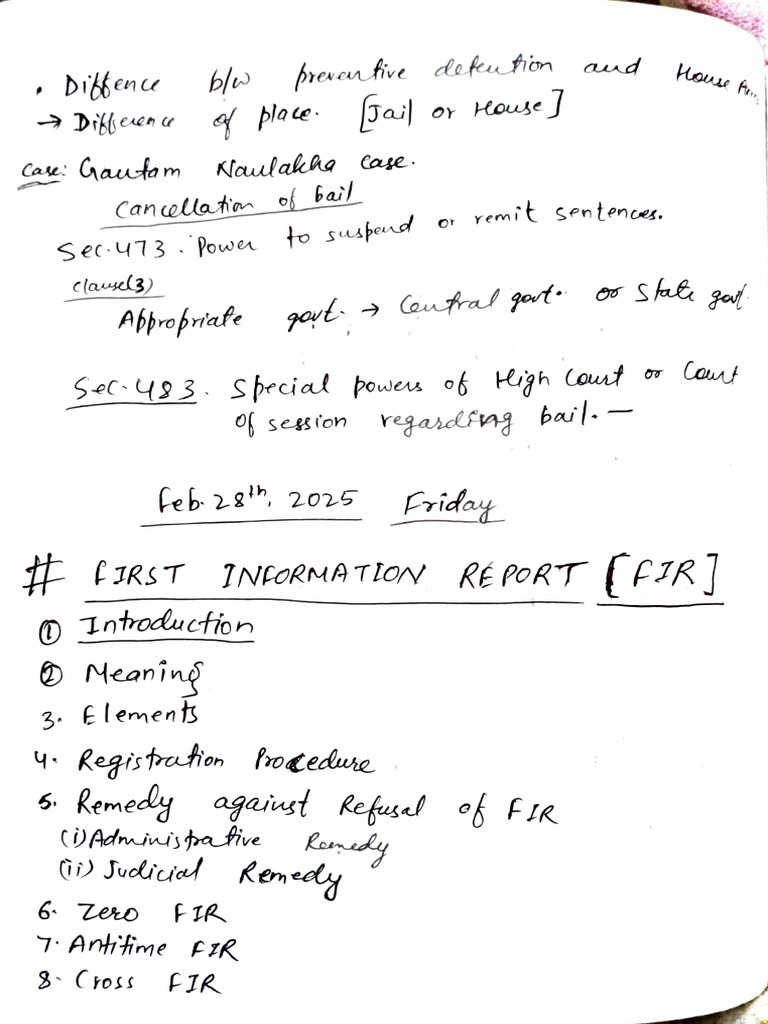 . Diffence b/w preventive detention and House Arr..
→ Difference of place. [Jail or House]
Case: Gautam Naulakha case.
Cancellation of bail
Sec.473. Power to suspend or remit sentences.
clause(3)
Appropriate govt. → Central govt. or State govt
Sec.483. Special powers of High Court or Court
of session regarding bail. —
Feb.28th, 2025 Friday
# FIRST INFORMATION REPORT [FIR]
① Introduction
② Meaning
3. Elements
4. Registration Procedure
5. Remedy against Refusal of FIR
(i) Administrative Remedy
(ii) Judicial Remedy
6. Zero FIR
7. Antitime FIR
8. Cross FIR